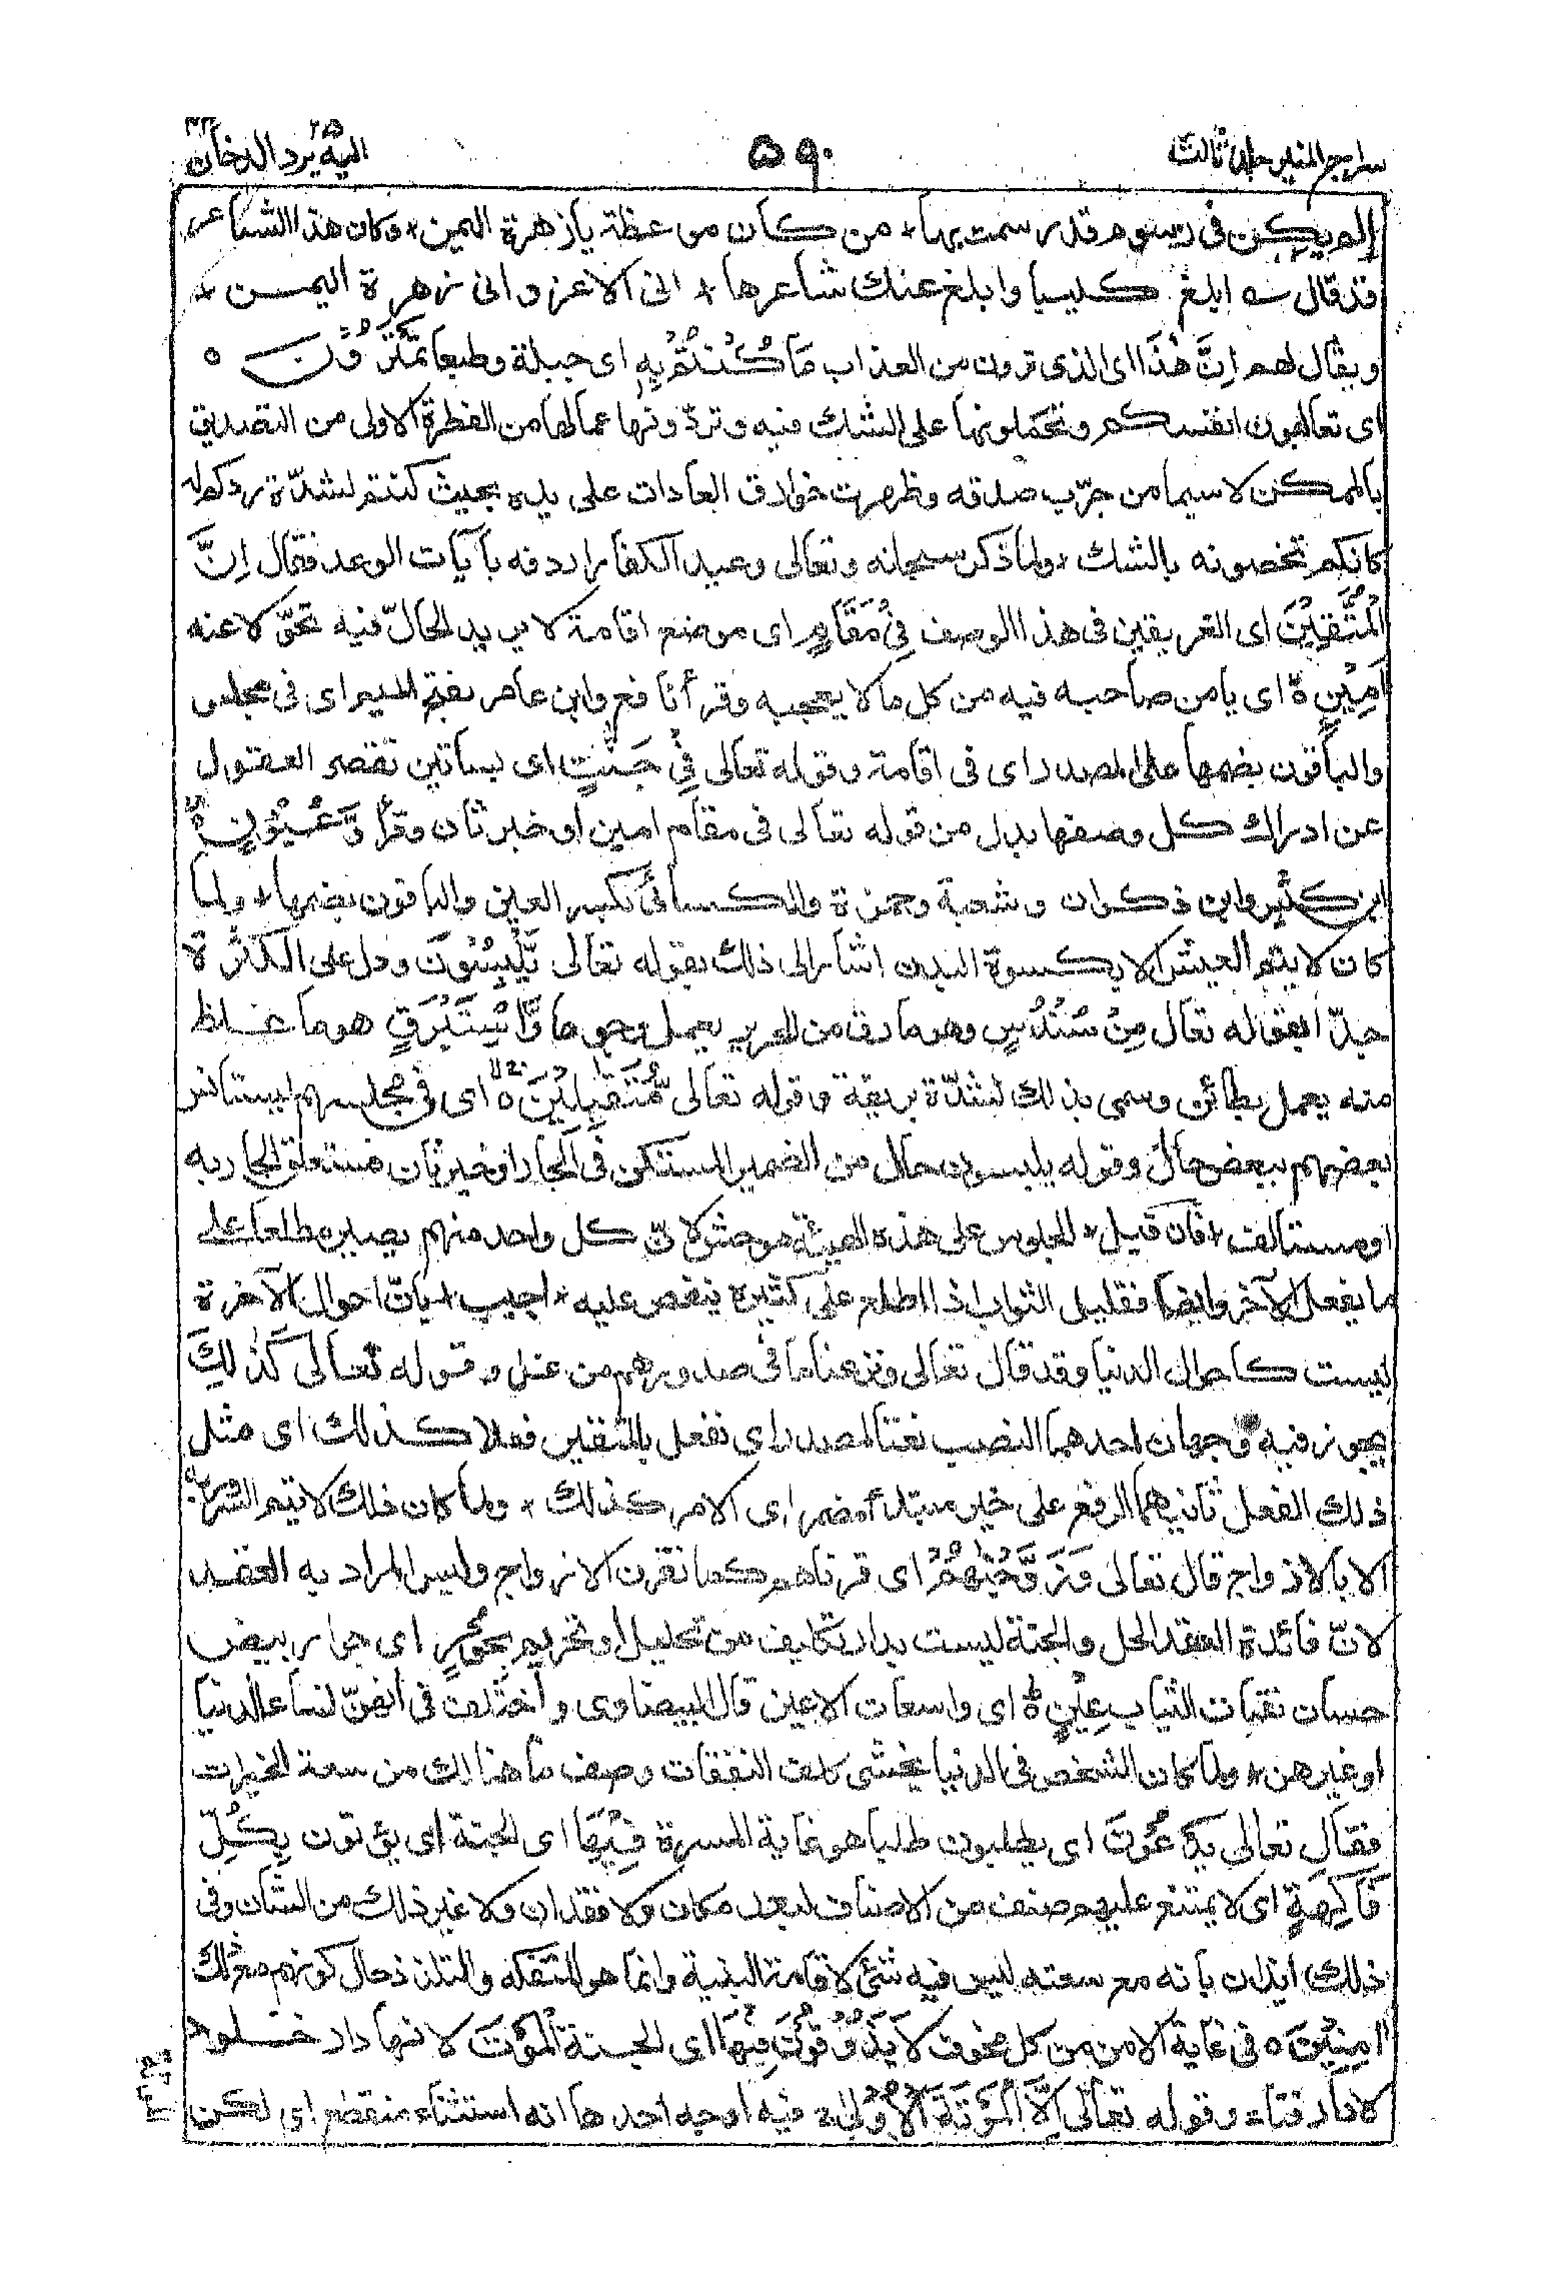 سراج المنير جلد ثالث
٥٩٠
اليه يرد ٢٥ الدخان ٤٤
الم يكن فى رسوم قد رسمت بها * من كان موعظة يا زهرة اليمن * وكان هذا الشاعر
قد قال ابلغ كليبا وابلغ عنك شاعرها * انى الاعز وانى زهرة اليمــن *
ويقال لهم اِنَّ هٰذَا اى الذى ترون من العذاب مَا كُنْتُمْ بِهٖ اى جبلة وطبعا تَمْتَرُوْنَ ٥
اى تعالجون انفسكم وتحملونها على الشك فيه وتردّونها عما لها من الفطرة الاولى من التصديق
بالممكن لاسيما من جرّب صدقه وظهرت خوارق العادات على يده بحيث كنتم لشدّة ردكم له
كانكم تخصونه بالشك * ولما ذكر سبحانه وتعالى وعيد الكفار اردفه بآيات الوعد فقال اِنَّ
الْمُتَّقِيْنَ اى العريقين فى هذا الوصف فِىْ مَقَامٍ اى موضع اقامة لا يريد الحالّ فيه تحوّلا عنه
اَمِيْنٍ ٥ اى يامن صاحبه فيه من كل ما لا يعجبه وقرأ نافع وابن عامر بفتح الميم اى فى مجلس
والباقون بضمها على المصدر اى فى اقامة وقوله تعالى فِىْ جَنّٰتٍ اى بساتين تقصر العقول
عن ادراك كل وصفها بدل من قوله تعالى فى مقام امين او خبر ثان وقرأ وَّعُيُوْنٍ ٥
ابن كثير وابن ذكوان وشعبة وحمزة والكسائى بكسر العين والباقون بضمها * ولما
كان لا يتم العيش الا بكسوة البدن اشار الى ذلك بقوله تعالى يَّلْبَسُوْنَ ودل على الكثرة
جدّا بقوله تعالى مِنْ سُنْدُسٍ وهو ما رق من الحرير يعمل وجوها وَّاِسْتَبْرَقٍ هو ما غلظ
منه يعمل بطائن وسمى بذلك لشدّة بريقه وقوله تعالى مُّتَقٰبِلِيْنَ ٥ اى فى مجلسهم ليستانس
بعضهم ببعض حال وقوله يلبسون حال من الضمير المستكن فى الجار او خبر ثان فستعلق الجار به
او مستانف * فان قيل * الجلوس على هذه الهيئة موحش لانّ كل واحد منهم يصير مطلعا على
ما يفعل الآخر وايضا فقليل الثواب اذا اطلع على كثيره ينغص عليه * اجيب * بانّ احوال الآخرة
ليست كاحوال الدنيا وقد قال تعالى ونزعنا ما فى صدورهم من غل وقوله تعالى كَذٰلِكَ
يجوز فيه وجهان احدهما النصب نعتا لمصدر اى نفعل بالمتقين فعلا كذلك اى مثل
ذلك الفعل ثانيهما الرفع على خبر مبتدأ مضمر اى الامر كذلك * ولما كان ذلك لا يتم السرور به
الا بالازواج قال تعالى وَزَوَّجْنٰهُمْ اى قرناهم كما تقرن الازواج وليس المراد به العقد
لانّ فائدة العقد الحل والجنة ليست بدار تكليف من تحليل او تحريم بِحُوْرٍ اى جوار بيض
حسان نقيات الثياب عِيْنٍ ٥ اى واسعات الاعين قال البيضاوى واختلف فى انهنّ نساء الدنيا
او غيرهن * ولما كان الشخص فى الدنيا يخشى كلف النفقات وصف ما هنالك من سعة الخيرات
فقال تعالى يَدْعُوْنَ اى يطلبون طلبا هو غاية المسرة فِيْهَا اى الجنة اى يؤتون بِكُلِّ
فَاكِهَةٍ اى لا يمتنع عليهم صنف من الاصناف لبعد مكان ولا فقدان ولا غير ذلك من الشان وفى
ذلك ايذان بانه مع سعته ليس فيه شئ لاقامة البنية وانما هو للتفكه والتلذذ حال كونهم مع ذلك
اٰمِنِيْنَ ٥ فى غاية الامن من كل مخوف لَا يَذُوْقُوْنَ فِيْهَا اى الجنة الْمَوْتَ لانها دار خلود
لا دار فناء وقوله تعالى اِلَّا الْمَوْتَةَ الْاُوْلٰى فيه اوجه احدها انه استثناء منقطع اى لكن